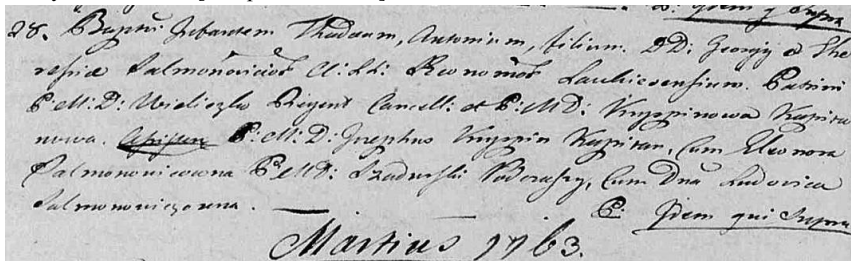 D: Idem q Supra
28. Baptm Infantem Thadaeum, Antonium, filium. DD: Georgy et The
resiae Salmonowiciorũ Oeconomorũ Patrini
P: M: D: Wieliczko Regent Cancell: et P: M D: Kryspinowa Kapita
nowa. Assisten P: M: D: Josephus Kryspin Kapitan, Cum Eleonora
Salmonowiczowna P: M D: Szadurski Podczaszy, Cum Dna Ludovica
Salmonowiczowna. P: Idem qui Supra
Martius 1763.